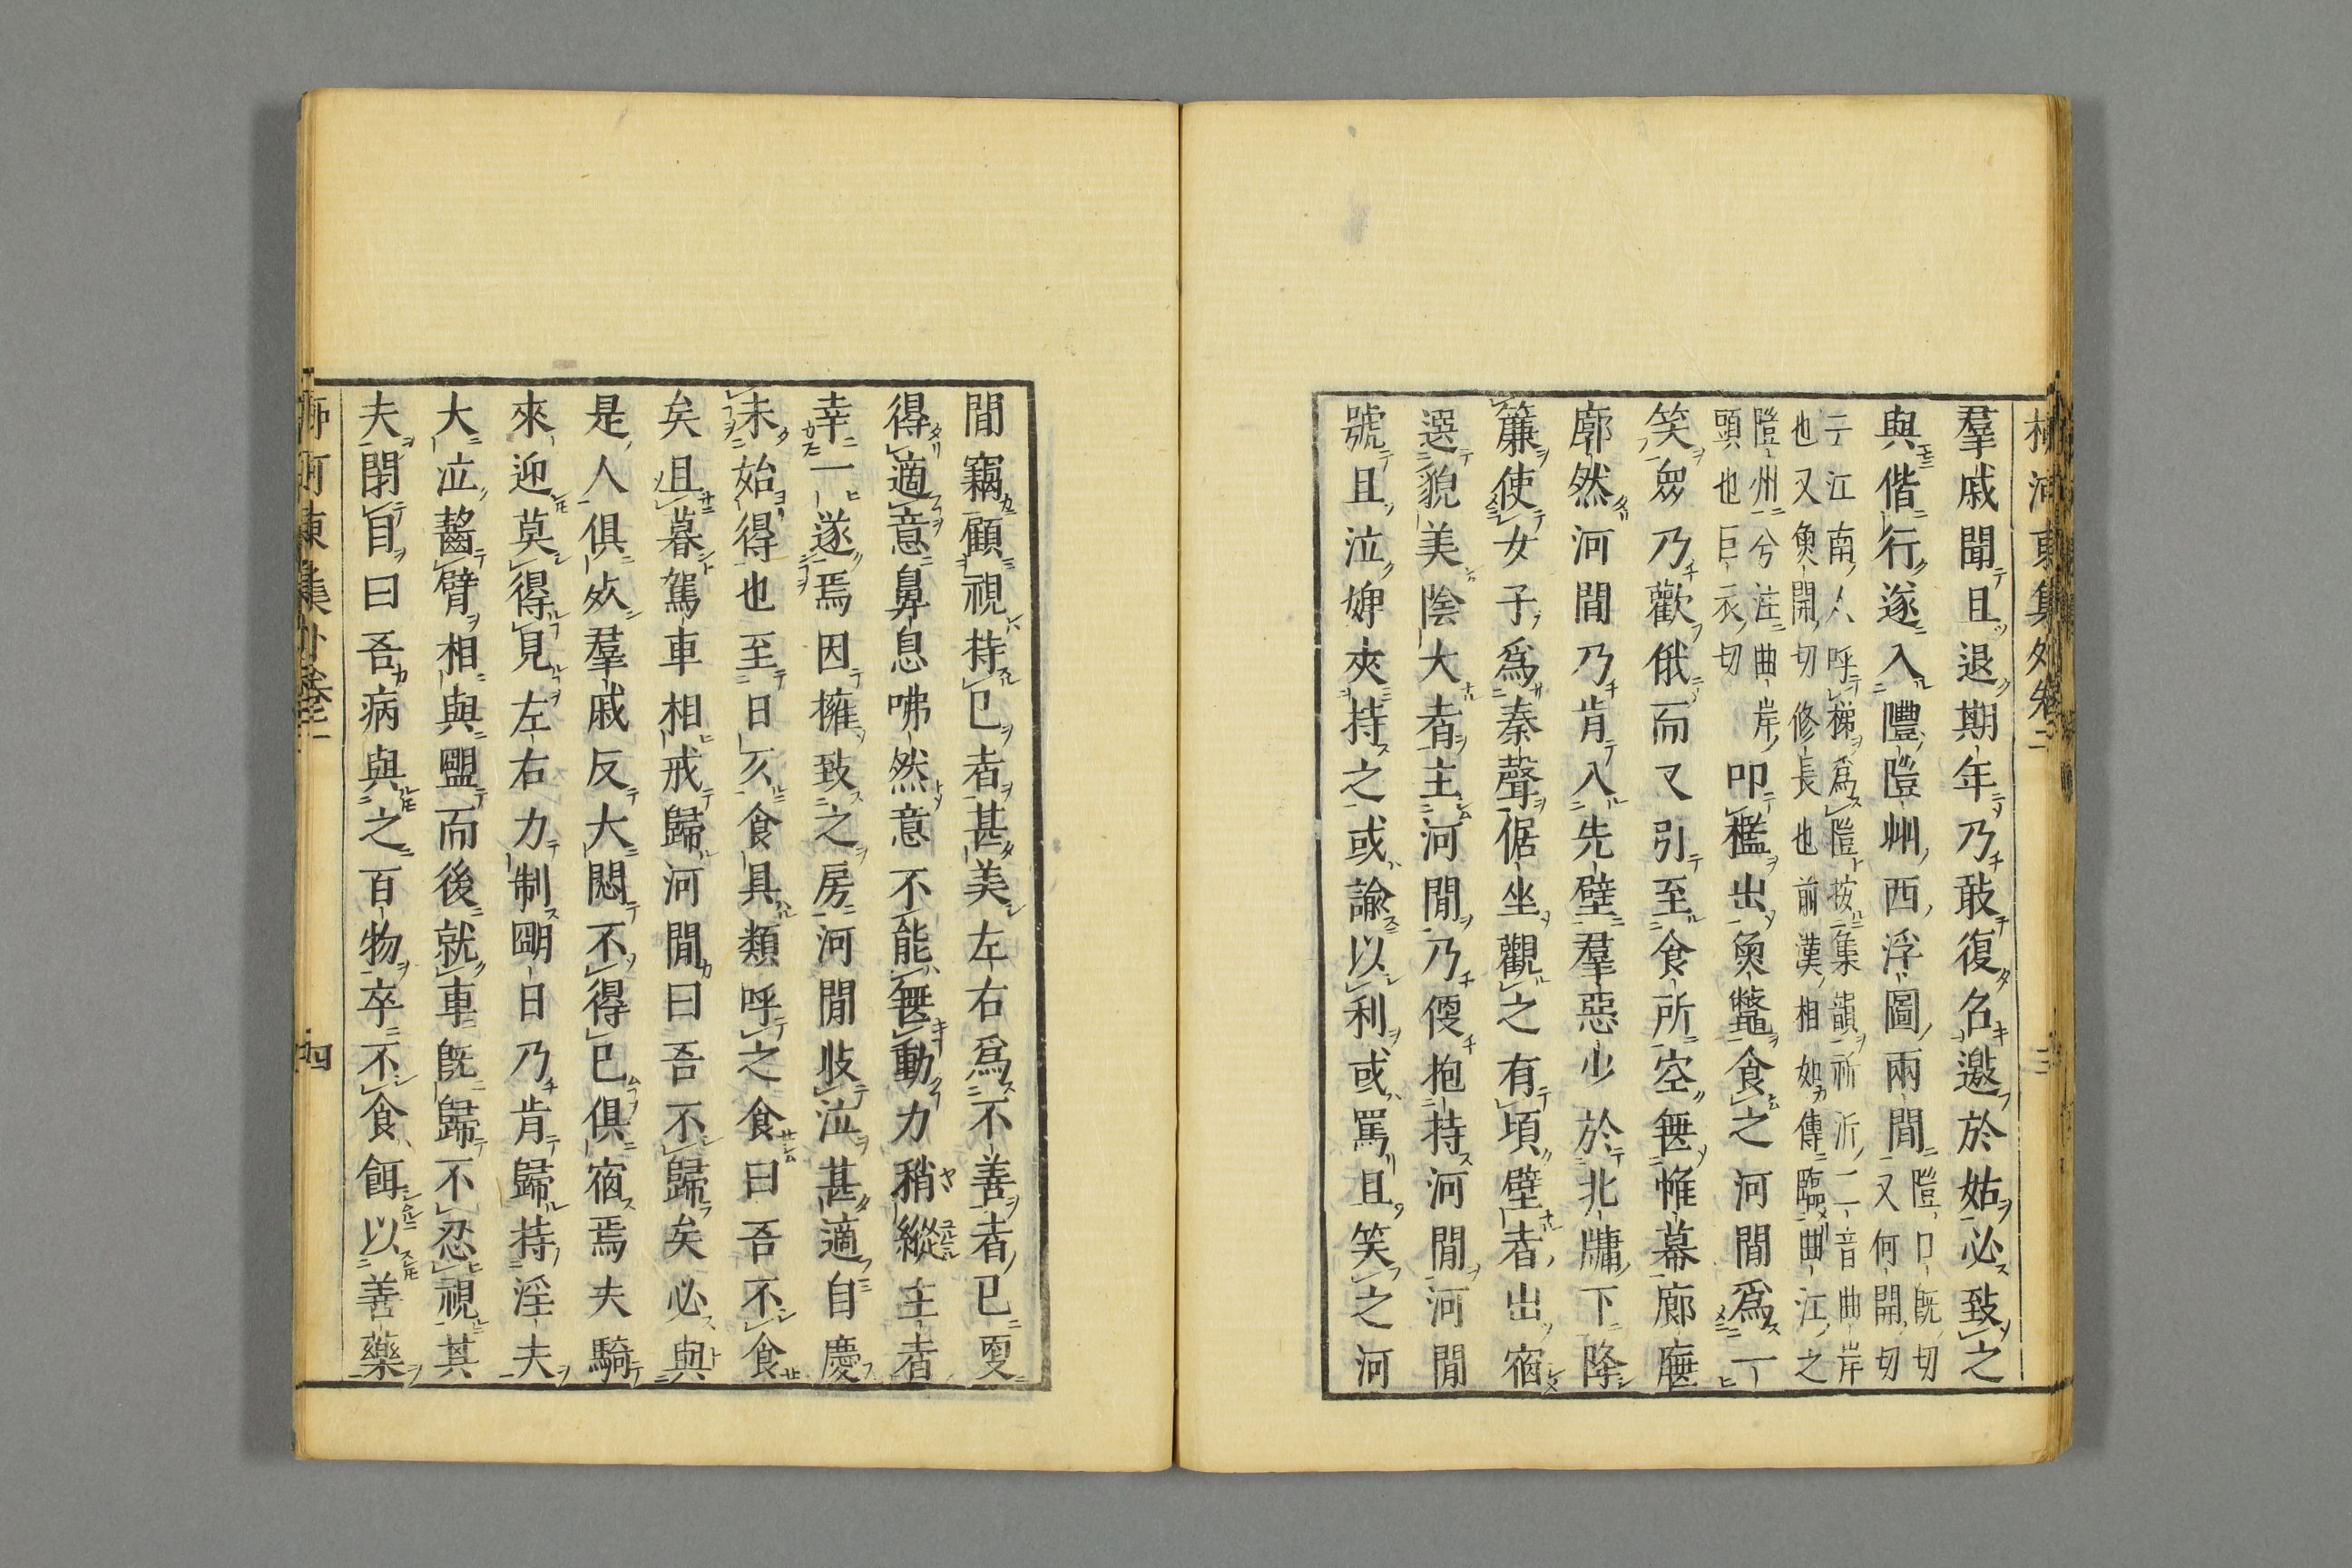 柳河東集外卷二　三
羣戚聞且退期年乃敢復名邀於姑必致之
與偕行遂入灃隑州西浮圖兩閒
隑口旣切
又何開切
亍江南人呼梯爲隑按集韻祈沂二音曲岸
也又魚開切修長也前漢相如傳臨曲江之
隑州兮注曲岸
頭也巨衣切
叩檻出魚鼈食之河閒爲一
笑眾乃歡俄而又引至食所空無帷幕廊廡
廓然河閒乃肯入先壁羣惡少於北牖下降
簾使女子爲秦聲倨坐觀之有頃壁者出宿
選貌美陰大者主河閒乃便抱持河閒河閒
號且泣婢夾持之或諭以利或罵且笑之河
閒竊顧視持已者甚美左右爲不善者已更
得適意鼻息咈然意不能無動力稍縱主者
幸一遂焉因擁致之房河閒收泣甚適自慶
未始得也至日仄食具類呼之食曰吾不食
矣且暮駕車相戒歸河閒曰吾不歸矣必與
是人俱死羣戚反大悶不得已俱宿焉夫騎
來迎莫得見左右力制明日乃肯歸持淫夫
大泣齧臂相與盟而後就車旣歸不忍視其
夫閉目曰吾病與之百物卒不食餌以善藥
柳河東集外卷二　四